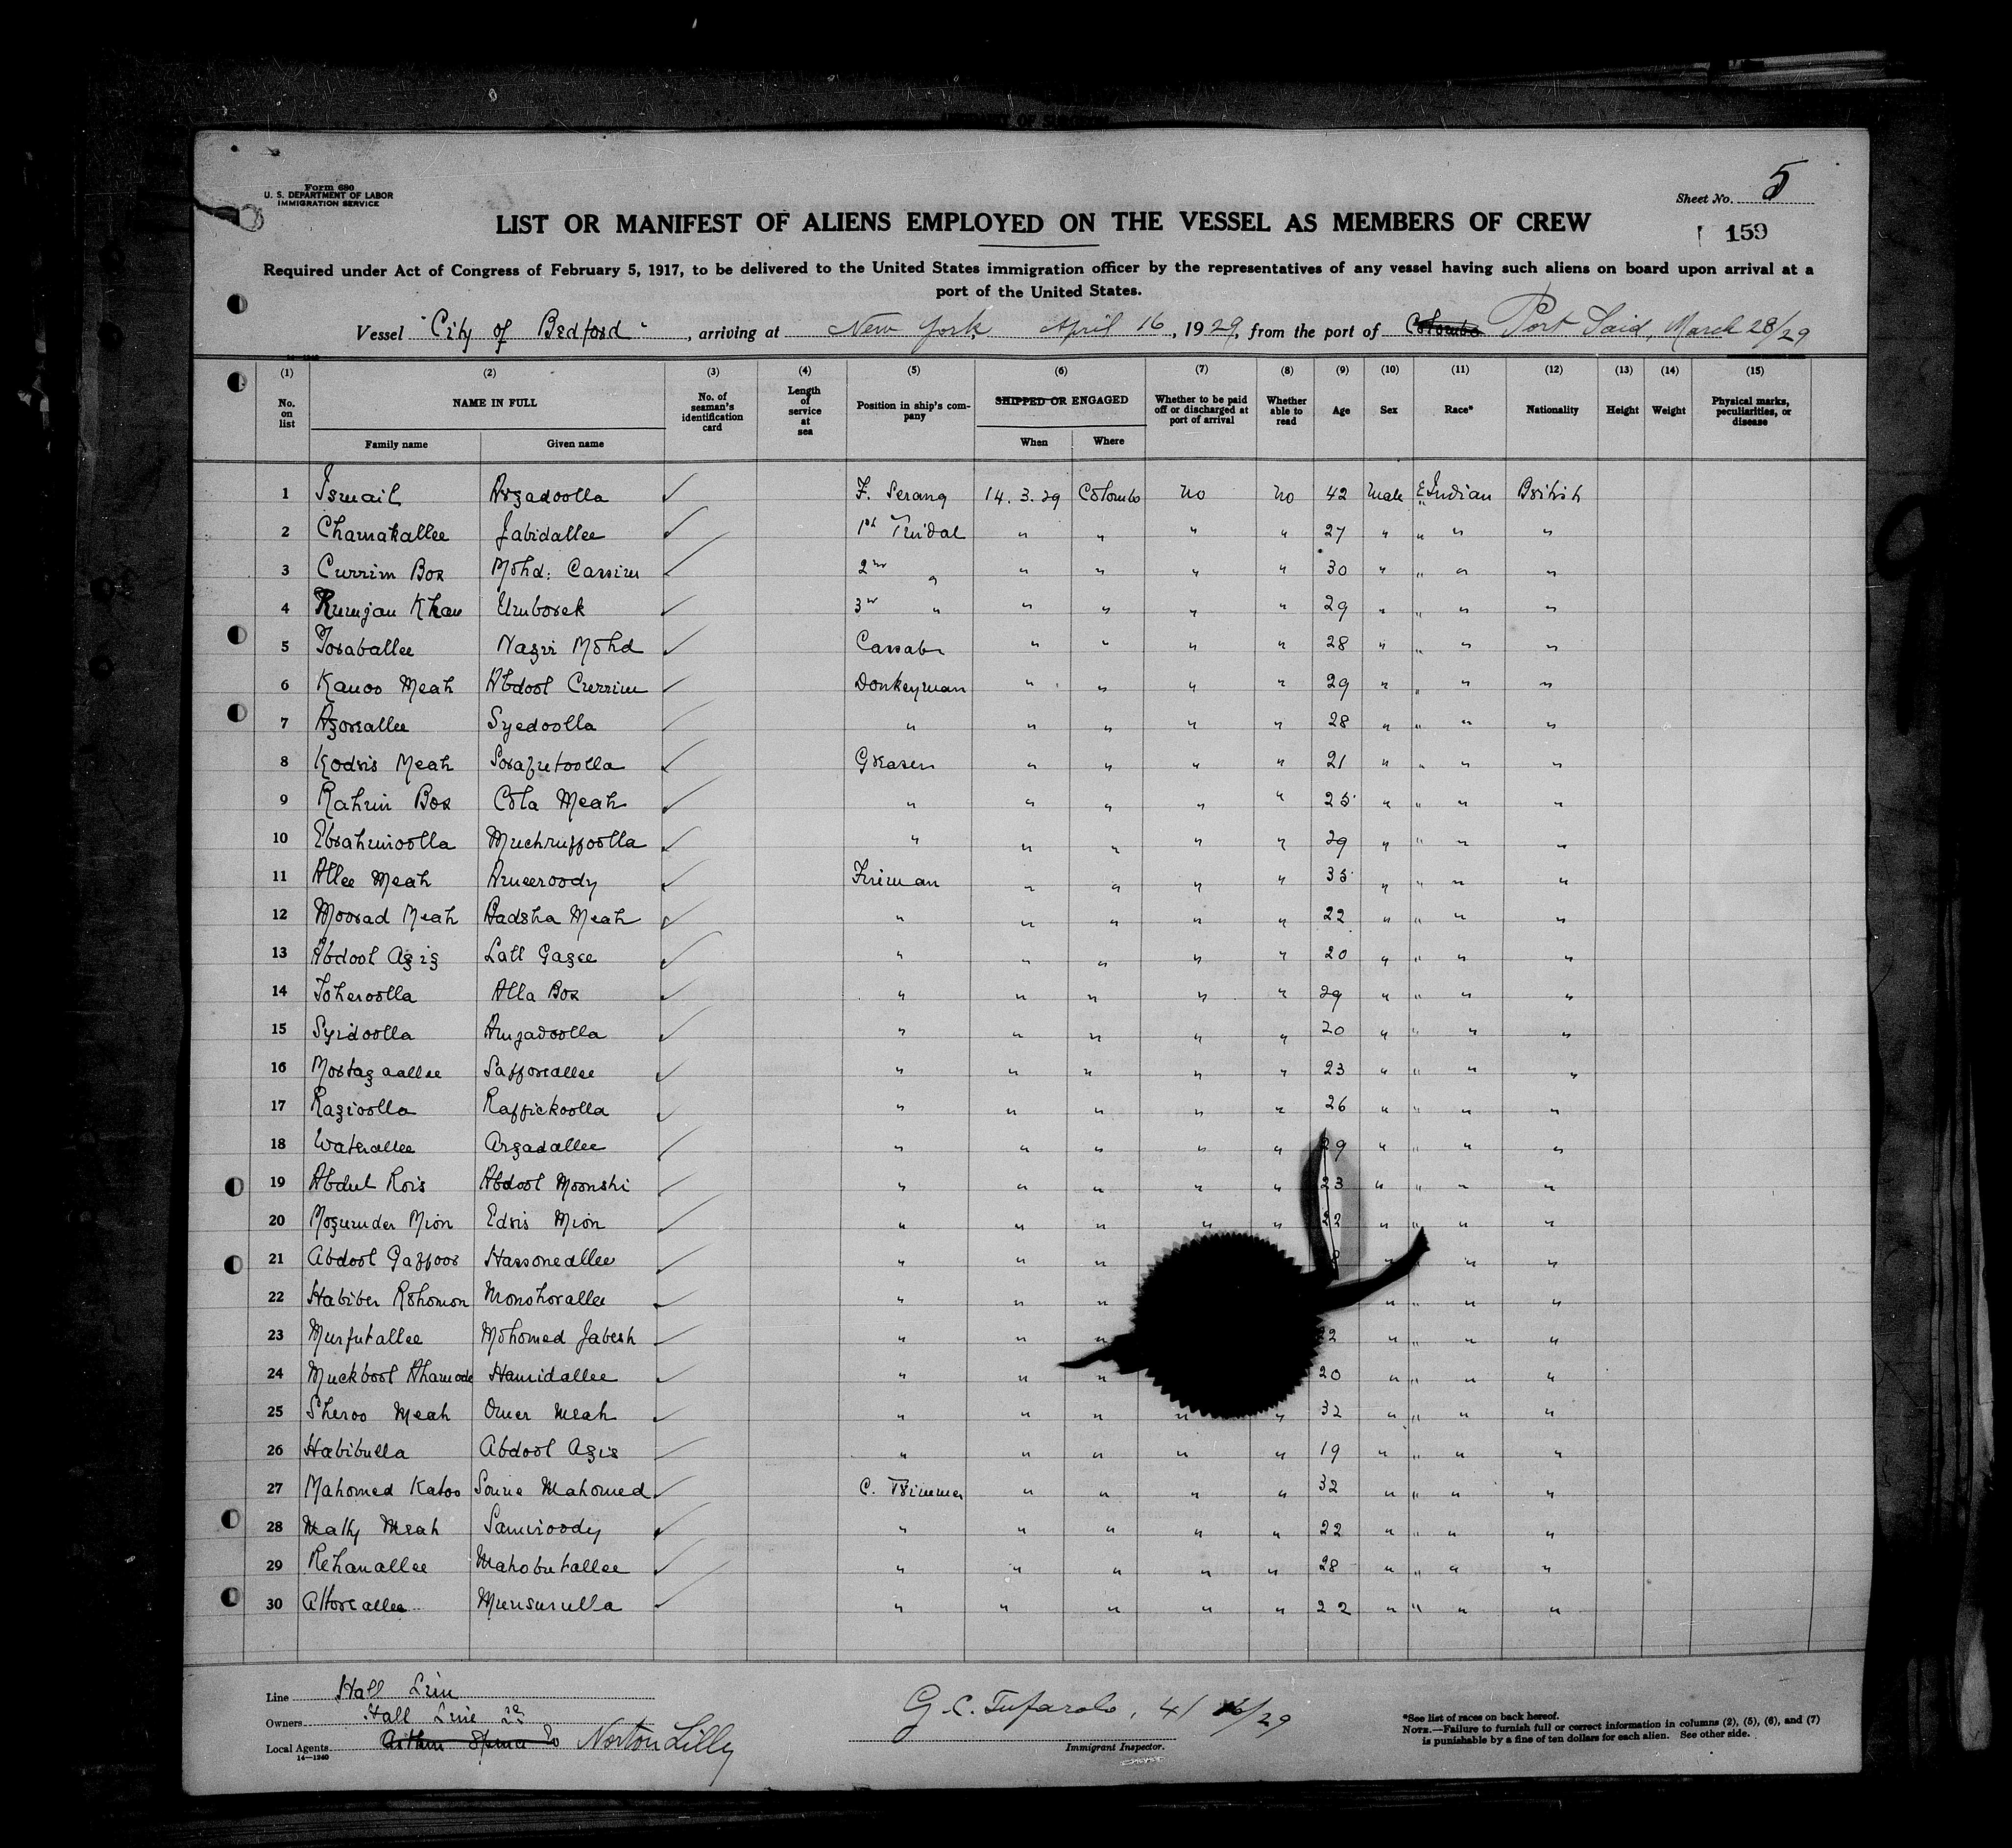 Form 680
U. S. DEPARTMENT OF LABOR
IMMIGRATION SERVICE
Sheet No. 5
159
LIST OR MANIFEST OF ALIENS EMPLOYED ON THE VESSEL AS MEMBERS OF CREW
Required under Act of Congress of February 5, 1917, to be delivered to the United States immigration officer by the representatives of any vessel having such aliens on board upon arrival at a
port of the United States.
Vessel "City of Bedford", arriving at New York April 16, 1929, from the port of Colombo Port Said, March 28/29
(1) (2) (3) (4) (5) (6) (7) (8) (9) (10) (11) (12) (13) (14) (15)
No. on list NAME IN FULL No. of seaman's identification card Length of service at sea Position in ship's company SHIPPED OR ENGAGED Whether to be paid off or discharged at port of arrival Whether able to read Age Sex Race* Nationality Height Weight Physical marks, peculiarities, or disease
Family name Given name When Where
1 Ismail Arzadoolla ✓ F. Serang 14.3.29 Colombo no no 42 Male E Indian British
2 Chamakallee Jabidallee ✓ 1st Tindal " " " " 27 " " " "
3 Currim Box Mohd: Cassim ✓ 2nd " " " " " 30 " " " "
4 Rumjan Khan Umborek ✓ 3rd " " " " " 29 " " " "
5 Toraballee Nazir Mohd ✓ Cassab " " " " 28 " " " "
6 Kanoo Meah Abdool Currim ✓ Donkeyman " " " " 29 " " " "
7 Azorallee Syedoolla ✓ " " " " " 28 " " " "
8 Kodris Meah Sorafutoolla ✓ Greaser " " " " 21 " " " "
9 Rahim Box Cola Meah ✓ " " " " " 25 " " " "
10 Ebrahimoolla Muchruffoolla ✓ " " " " " 29 " " " "
11 Allee Meah Ameeroody ✓ Fireman " " " " 35 " " " "
12 Moorad Meah Badsha Meah ✓ " " " " " 22 " " " "
13 Abdool Aziz Lall Gazee ✓ " " " " " 20 " " " "
14 Toheroolla Alla Box ✓ " " " " " 29 " " " "
15 Syidoolla Amjadoolla ✓ " " " " " 20 " " " "
16 Mortazaallee Safforeallee ✓ " " " " " 23 " " " "
17 Razioolla Raffickoolla ✓ " " " " " 26 " " " "
18 Waterallee Arzadallee ✓ " " " " " 29 " " " "
19 Abdul Rois Abdool Moonshi ✓ " " " " " 23 " " " "
20 Mozumder Mion Edris Mion ✓ " " " " " 22 " " " "
21 Abdool Gaffoor Hassoneallee ✓ " " " 8 " " " "
22 Habiber Rohomon Monohorallee ✓ " " " " " " "
23 Murfutallee Mohomed Jabesh ✓ " " " 22 " " " "
24 Muckbool Ahamode Hamidallee ✓ " " " 20 " " " "
25 Sheroo Meah Omer Meah ✓ " " " " " 32 " " " "
26 Habibulla Abdool Azis ✓ " " " " " 19 " " " "
27 Mahomed Kaloo Sonue Mahomed ✓ C. Trimmer " " " " 32 " " " "
28 Mally Meah Samiroody ✓ " " " " " 22 " " " "
29 Rehanallee Mahobutallee ✓ " " " " " 28 " " " "
30 Attoreallee Munsurulla ✓ " " " " " 22 " " " "
Line Hall Line
Owners Hall Line Ld
Local Agents Norton Lilly
14—1240
G. C. Tufarolo, 4/16/29
Immigrant Inspector.
*See list of races on back hereof.
NOTE.—Failure to furnish full or correct information in columns (2), (5), (6), and (7)
is punishable by a fine of ten dollars for each alien. See other side.